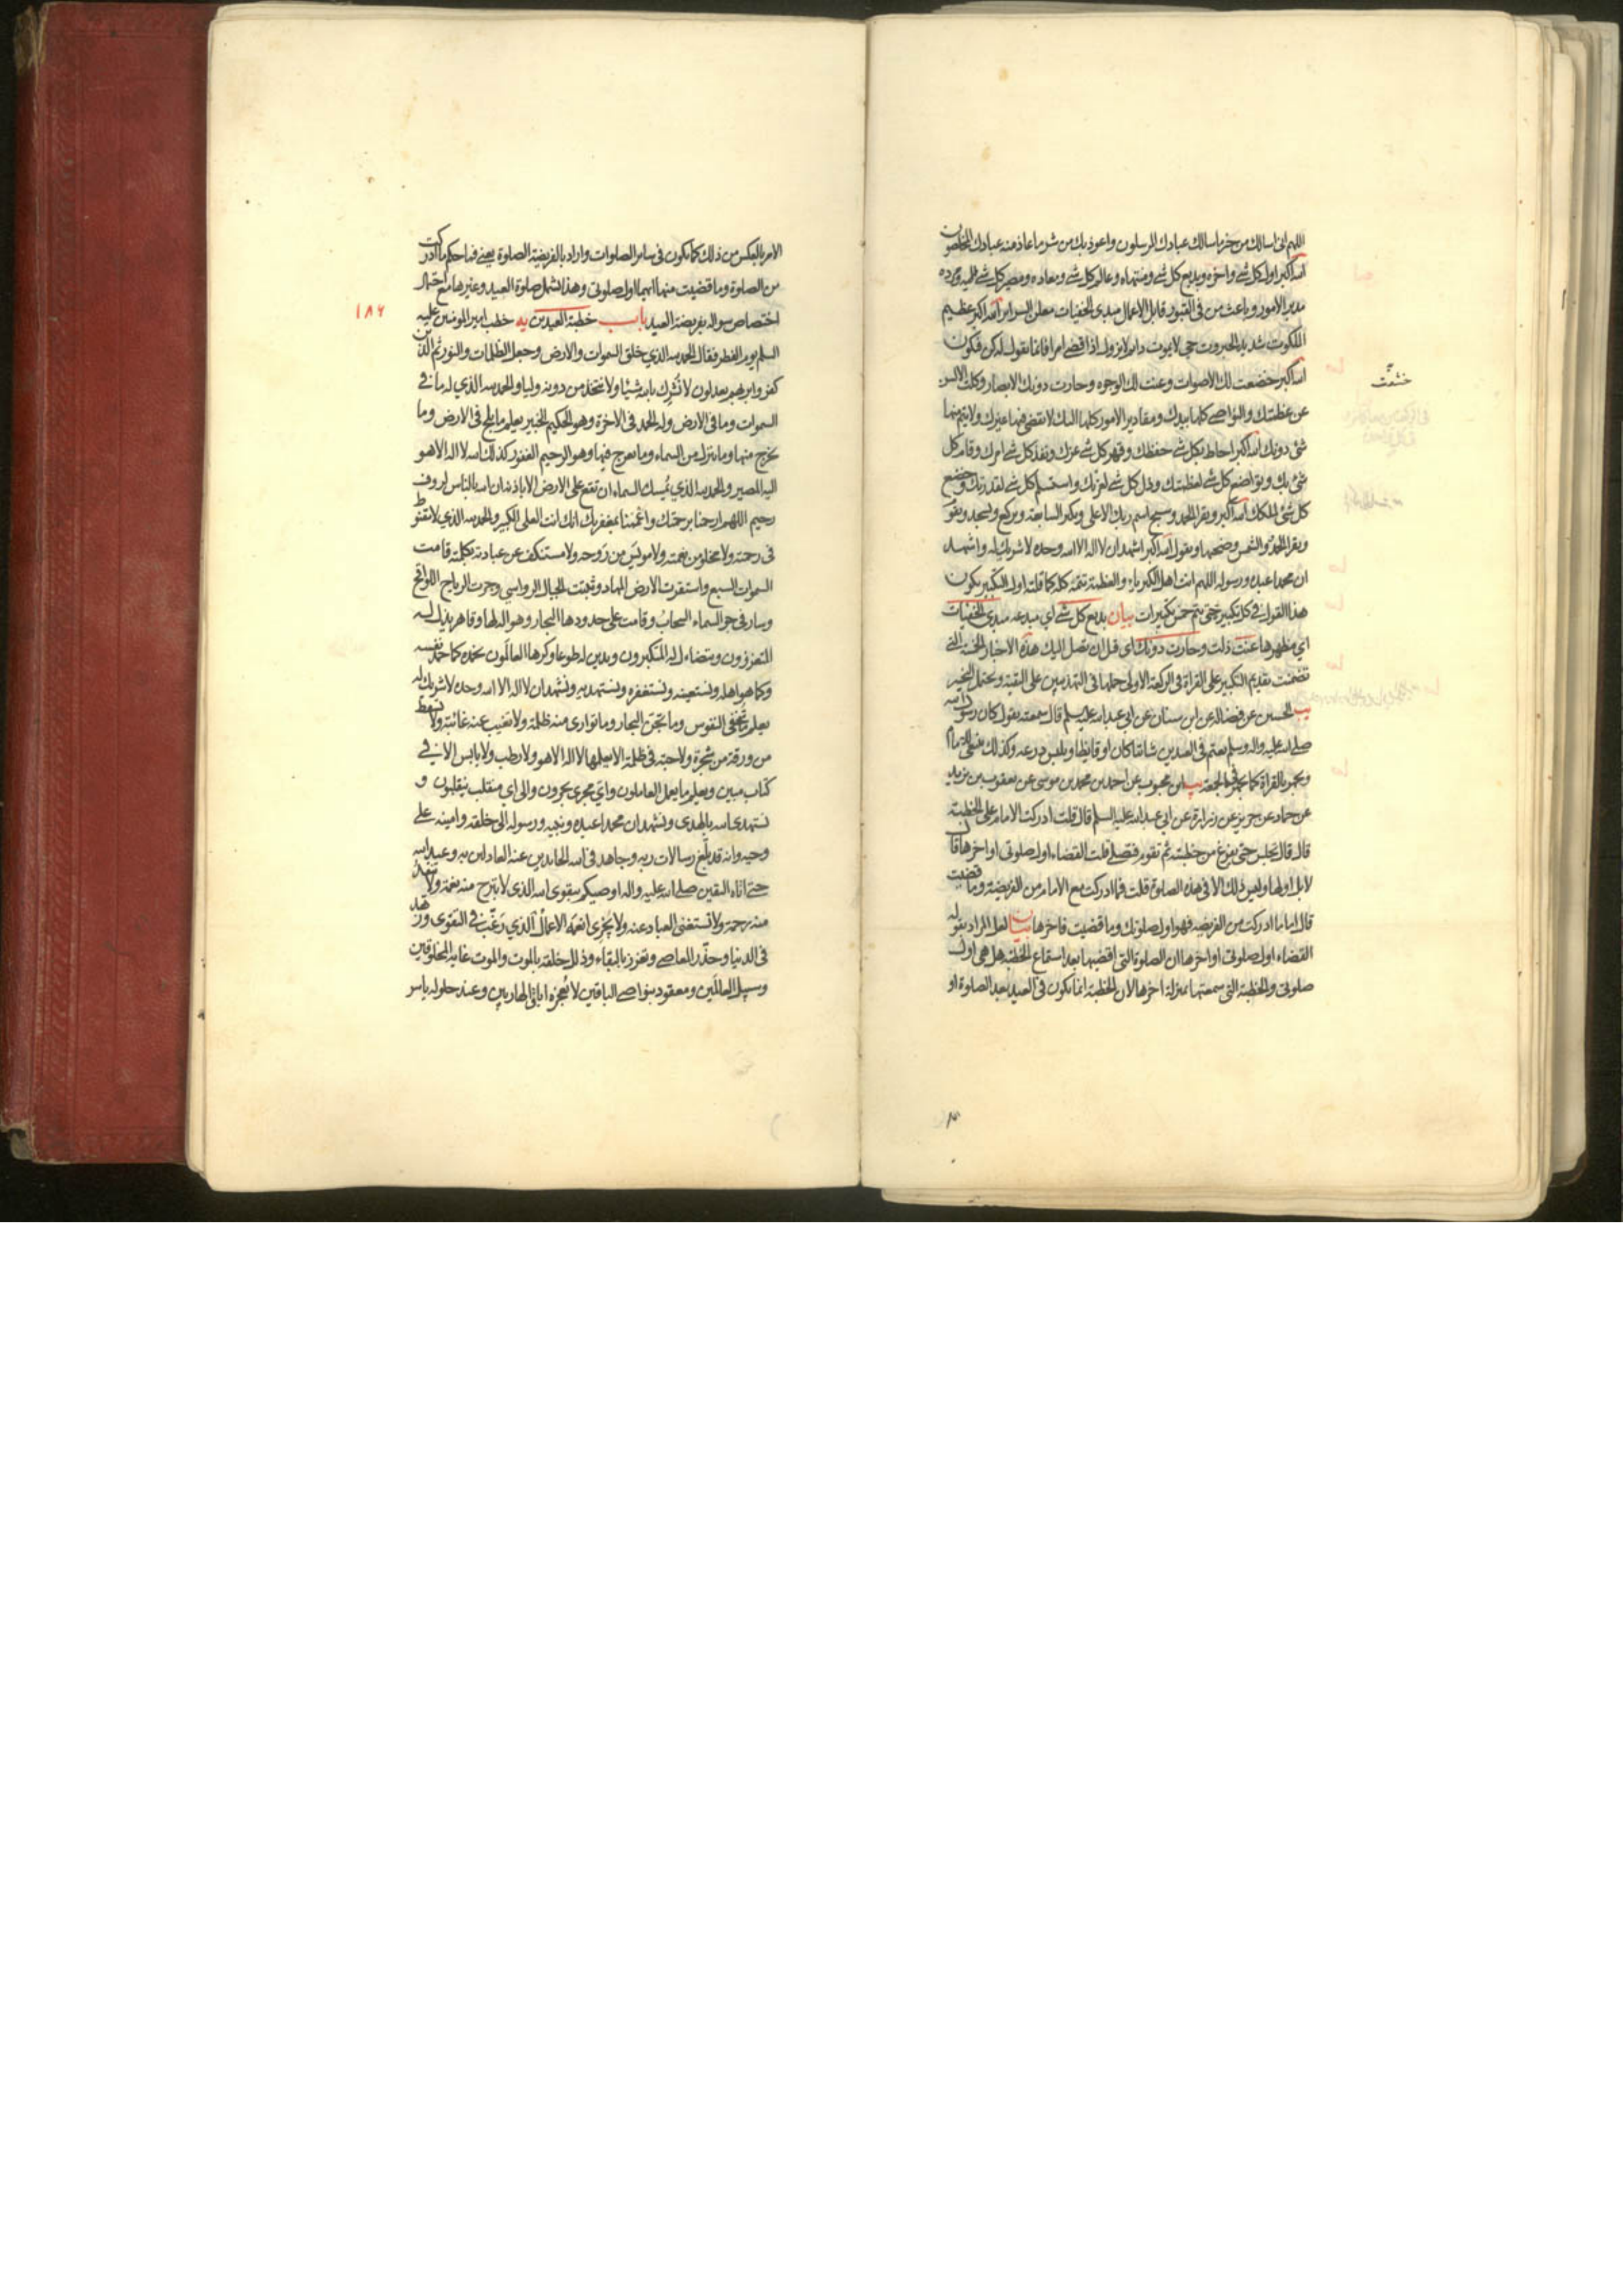 اللهم انى اسالك من خير ما سالك عبادك المرسلون واعوذ بك من شر ما عاذ منه عبادك المخلصون
الله اكبر اول كل شئ واخره وبديع كل شئ ومنتهاه وعالم كل شئ ومعاده ومصير كل شئ اليه ومرده
مدبر الامور وباعث من فى القبور قابل الاعمال مبدى الخفيات معلن السراير الله اكبر عظيم
الملكوت شديد الجبروت حي لا يموت دايم لا يزول اذا قضى امرا فانما يقول له كن فيكون
الله اكبر خضعت لك الاصوات وعنت لك الوجوه وحارت دونك الابصار وكلت الالسن
خشعت
عن عظمتك والنواصى كلها بيدك ومقادير الامور كلها اليك لا يقضى فيها غيرك ولا يتم منها
شئ دونك الله اكبر احاط بكل شئ حفظك وقهر كل شئ عزك ونفذ كل شئ امرك وقام كل
شئ بك وتواضع كل شئ لعظمتك وذل كل شئ لعزتك واستسلم كل شئ لقدرتك وخضع
كل شئ لملكك الله اكبر ويقرا الحمد وسبح اسم ربك الاعلى ويكبر السابعة ويركع ويسجد ويقو
ويقرا الحمد والشمس وضحيها ويقول الله اكبر اشهد ان لا اله الا الله وحده لا شريك له واشهد
ان محمدا عبده ورسوله اللهم انت اهل الكبرياء والعظمة تتمه كله كما قلته اول التكبير يكون
هذا القول فى كل تكبيرة حتى يتم خمس تكبيرات بيان بديع كل شئ اي مبدعه مبدى الخفيات
اي مظهرها عنت ذلت وحارت دونك اى قبل ان تصل اليك هذه الاخبار الخمسة التى
تضمنت تقديم التكبير على القراة فى الركعة الاولى حملها فى التهذيبين على التقية ويحتمل التخيير
يب الحسين عن فضالة عن ابن سنان عن ابي عبد الله عليه السلم قال سمعته يقول كان رسول الله
صلى الله عليه واله وسلم يعتم فى العيدين شاتيا كان او قايظا ويلبس درعه وكذلك ينبغى للامام
ويجهر بالقراة كما يجهر فى الجمعة يب ابن محبوب عن احمد بن محمد بن موسى عن يعقوب بن يزيد
عن حماد عن حريز عن زرارة عن ابي عبد الله عليه السلم قال قلت ادركت الامام على الخطبة
قال قال تجلس حتى يفرغ من خطبته ثم تقوم فتصلى قلت القضاء اول صلوتى او اخرها قال
لا بل اولها وليس ذلك الا فى هذه الصلوة قلت فما ادركت مع الامام من الفريضة وما قضيت
قال اما ما ادركت من الفريضة فهو اول صلوتك وما قضيت فاخرها بيان لعل المراد بقوله
القضاء اول صلوتى او اخرها ان الصلوة التى اقضيها بعد استماع الخطبة هل هى اول
صلوتى والخطبة التى سمعتها بمنزلة اخرها لان الخطبة انما يكون فى العيد بعد الصلوة او
الامر بالعكس من ذلك كما يكون فى ساير الصلوات واراد بالفريضة الصلوة يعنى فما حكم ما ادركت
من الصلوة وما قضيت منها ايهما اول صلوتى وهذا يشمل صلوة العيد وغيرها مع احتمال
اختصاص سواله بفريضة العيد باب خطبة العيدين يه خطب امير المومنين عليه
١٨٦
السلم يوم الفطر فقال الحمد لله الذي خلق السموات والارض وجعل الظلمات والنور ثم الذين
كفروا بربهم يعدلون لا نشرك بالله شيئا ولا نتخذ من دونه وليا والحمد لله الذي له ما فى
السموات وما فى الارض وله الحمد فى الاخرة وهو الحكيم الخبير يعلم ما يلج فى الارض وما
يخرج منها وما ينزل من السماء وما يعرج فيها وهو الرحيم الغفور كذلك الله لا اله الا هو
اليه المصير والحمد لله الذي يمسك السماء ان تقع على الارض الا باذنه ان الله بالناس لروف
رحيم اللهم ارحمنا برحمتك واعممنا بمغفرتك انك انت العلى الكبير والحمد لله الذي لا مقنوط
فى رحمته ولا مخلو من نعمته ولا مويس من روحه ولا مستنكف عن عبادته بكلمته قامت
السموات السبع واستقرت الارض المهاد وثبتت الجبال الرواسي وجرت الرياح اللواقح
وسار فى جو السماء السحاب وقامت على حدودها البحار وهو اله لها وقاهر يذل له
المتعززون ويتضاءل له المتكبرون ويدين له طوعا وكرها العالمون نحمده كما حمد نفسه
وكما هو اهله ونستعينه ونستغفره ونستهديه ونشهد ان لا اله الا الله وحده لا شريك له
يعلم ما تخفى النفوس وما تجن البحار وما توارى منه ظلمة ولا تغيب عنه غائبة ولا تسقط
من ورقة من شجرة ولا حبة فى ظلمة الا يعلمها لا اله الا هو ولا رطب ولا يابس الا فى
كتاب مبين ويعلم ما يعمل العاملون واي مجرى يجرون والى اي منقلب ينقلبون و
نستهدى الله بالهدى ونشهد ان محمدا عبده ونبيه ورسوله الى خلقه وامينه على
وحيه وانه قد بلغ رسالات ربه وجاهد فى الله الحايدين عنه العادلين به وعبد الله
حتى اتاه اليقين صلى الله عليه واله اوصيكم بتقوى الله الذى لا تبرح منه نعمة ولا تنفد
منه رحمة ولا تستغنى العباد عنه ولا يجزى انعمه الاعمال الذي رغب فى التقوى وزهد
فى الدنيا وحذر المعاصى وتعزز بالبقاء وذلل خلقه بالموت والموت غاية المخلوقين
وسبيل العالمين ومعقود بنواصى الباقين لا يعجزه اباق الهاربين وعند حلوله ياسر